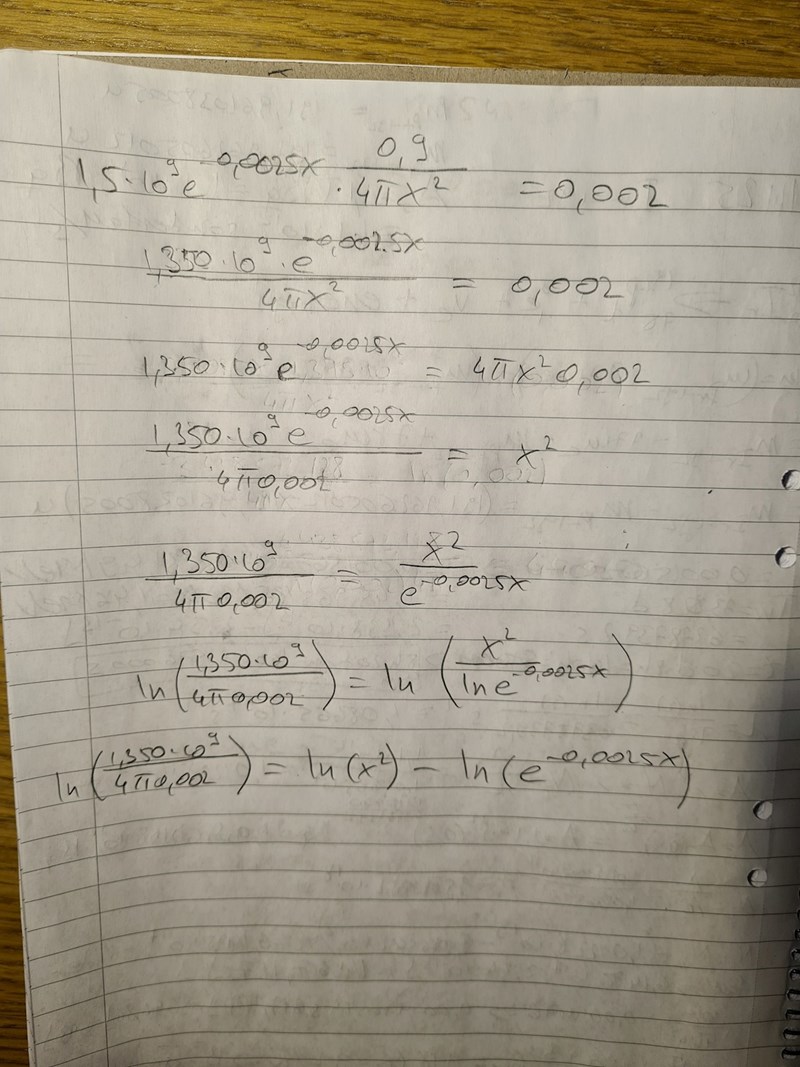 1,5·10⁹e^-0,0025x · 0,9/4πx² = 0,002
1,350·10⁹·e^-0,0025x/4πx² = 0,002
1,350·10⁹e^-0,0025x = 4πx²0,002
1,350·10⁹e^-0,0025x/4π0,002 = x²
1,350·10⁹/4π0,002 = x²/e^-0,0025x
ln(1,350·10⁹/4π0,002) = ln(x²/ln e^-0,0025x)
ln(1,350·10⁹/4π0,002) = ln(x²) - ln(e^-0,0025x)